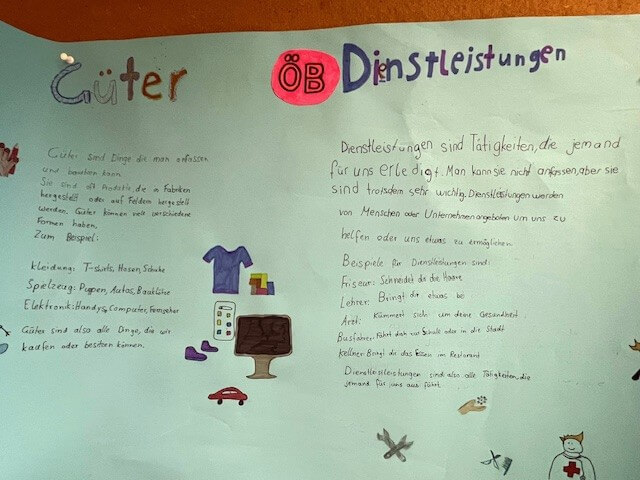 Güter
Güter sind Dinge die man anfassen
und benutzen kann.
Sie sind oft Produkte die in Fabriken
hergestellt oder auf Feldern hergestell
werden. Güter können viele verschiedene
Formen haben.
Zum Beispiel:
Kleidung: T-shirts, Hosen, Schuhe
Spielzeug: Puppen, Autos, Bauklötze
Elektronik: Handys, Computer, Fernseher
Güter sind also alle Dinge, die wir
kaufen oder besitzen können.
ÖB
Dienstleistungen
Dienstleistungen sind Tätigkeiten, die jemand
für uns erledigt. Man kann sie nicht anfassen, aber sie
sind trotsdem sehr wichtig. Dienstleistungen werden
von Menschen oder Unternehmen angeboten um uns zu
helfen oder uns etwas zu ermöglichen.
Beispiele für Dienstleistungen sind:
Friseur: Schneidet dir die Haare
Lehrer: Bringt dir etwas bei
Arzt: Kümmert sich um deine Gesundheit
Busfahrer: Fährt dich zur Schule oder in die Stadt
Kellner Bringt dir das Essen im Restorant
Dienstleistungen sind also alle Tätigkeiten, die
jemand für uns aus führt.